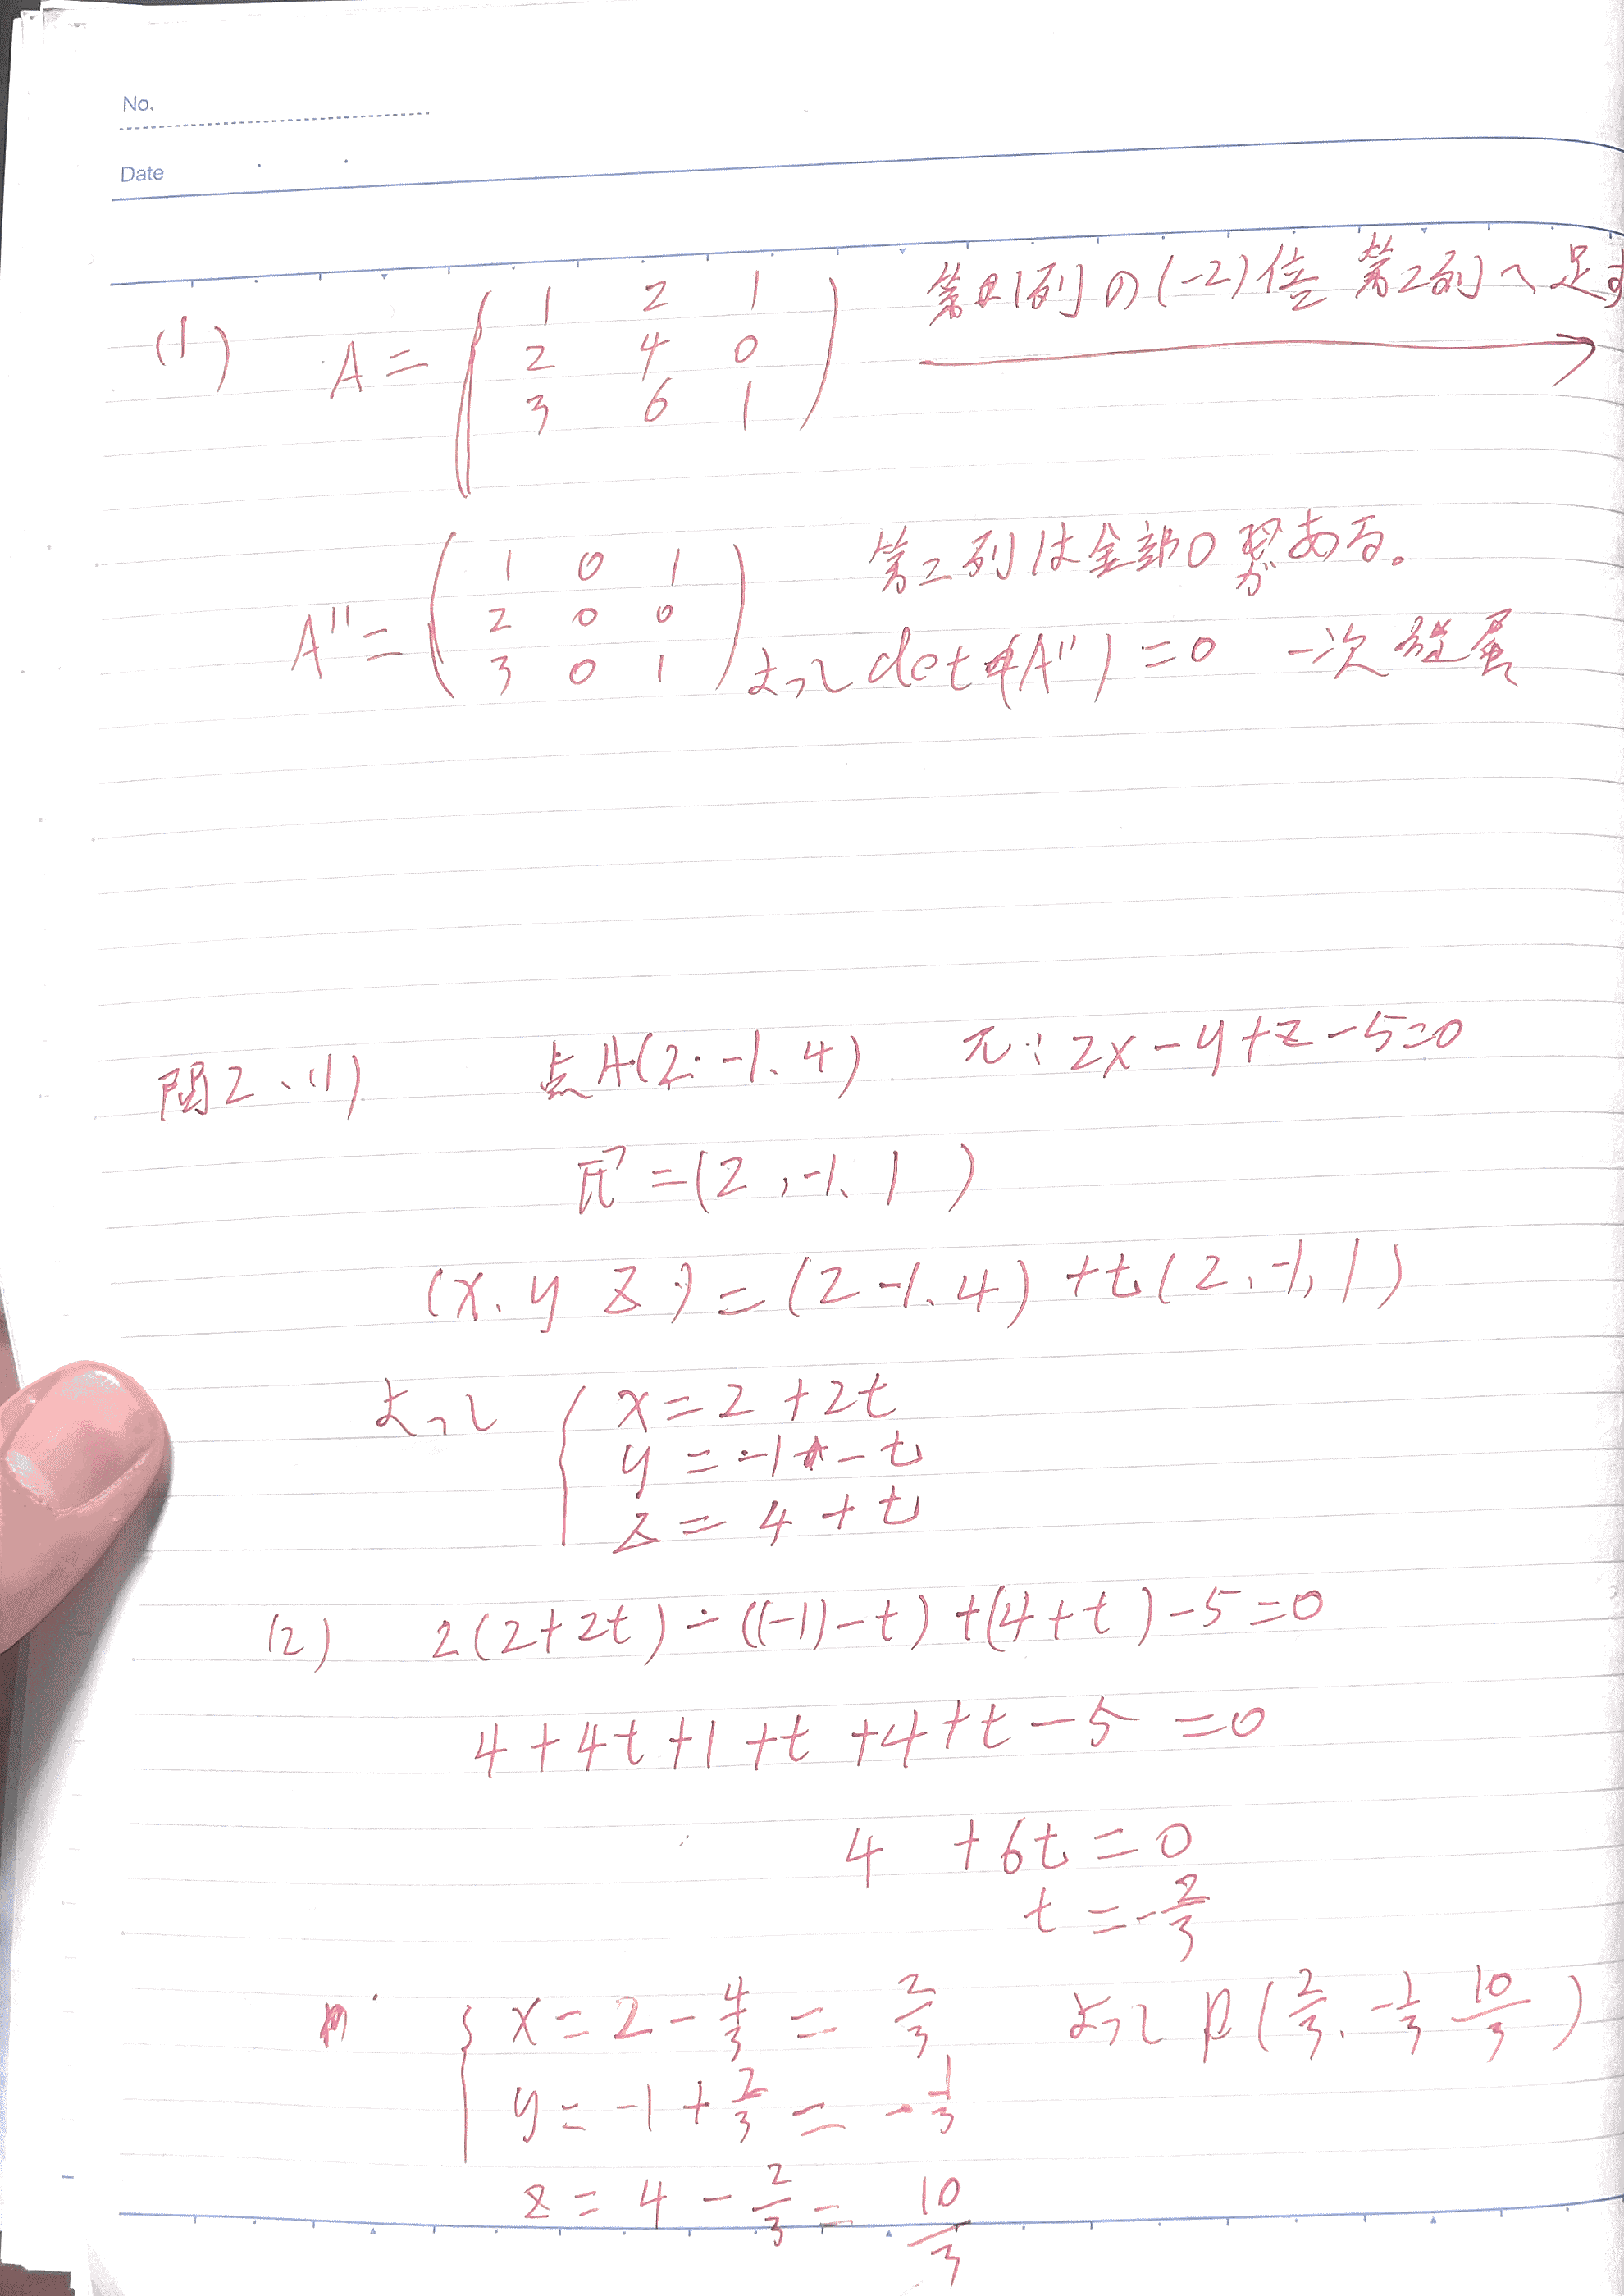 No.
Date
(1) A = ( 1 2 1 第1列の(-2)倍 第2列へ足す
2 4 0
3 6 1 )
A'' = ( 1 0 1 第二列は全部0がある。
2 0 0
3 0 1 ) よって det(A'') = 0 一次従属
問2、(1) 点A(2. -1. 4) π: 2x - y + z - 5 = 0
n→ = (2, -1, 1)
(x. y z) = (2 -1. 4) + t(2, -1, 1)
よって { x = 2 + 2t
y = -1 - t
z = 4 + t
(2) 2(2+2t) - ((-1) - t) + (4+t) - 5 = 0
4 + 4t + 1 + t + 4 + t - 5 = 0
4 + 6t = 0
t = -2/3
{ x = 2 - 4/3 = 2/3 よって P(2/3, -1/3 10/3)
y = -1 + 2/3 = -1/3
z = 4 - 2/3 = 10/3